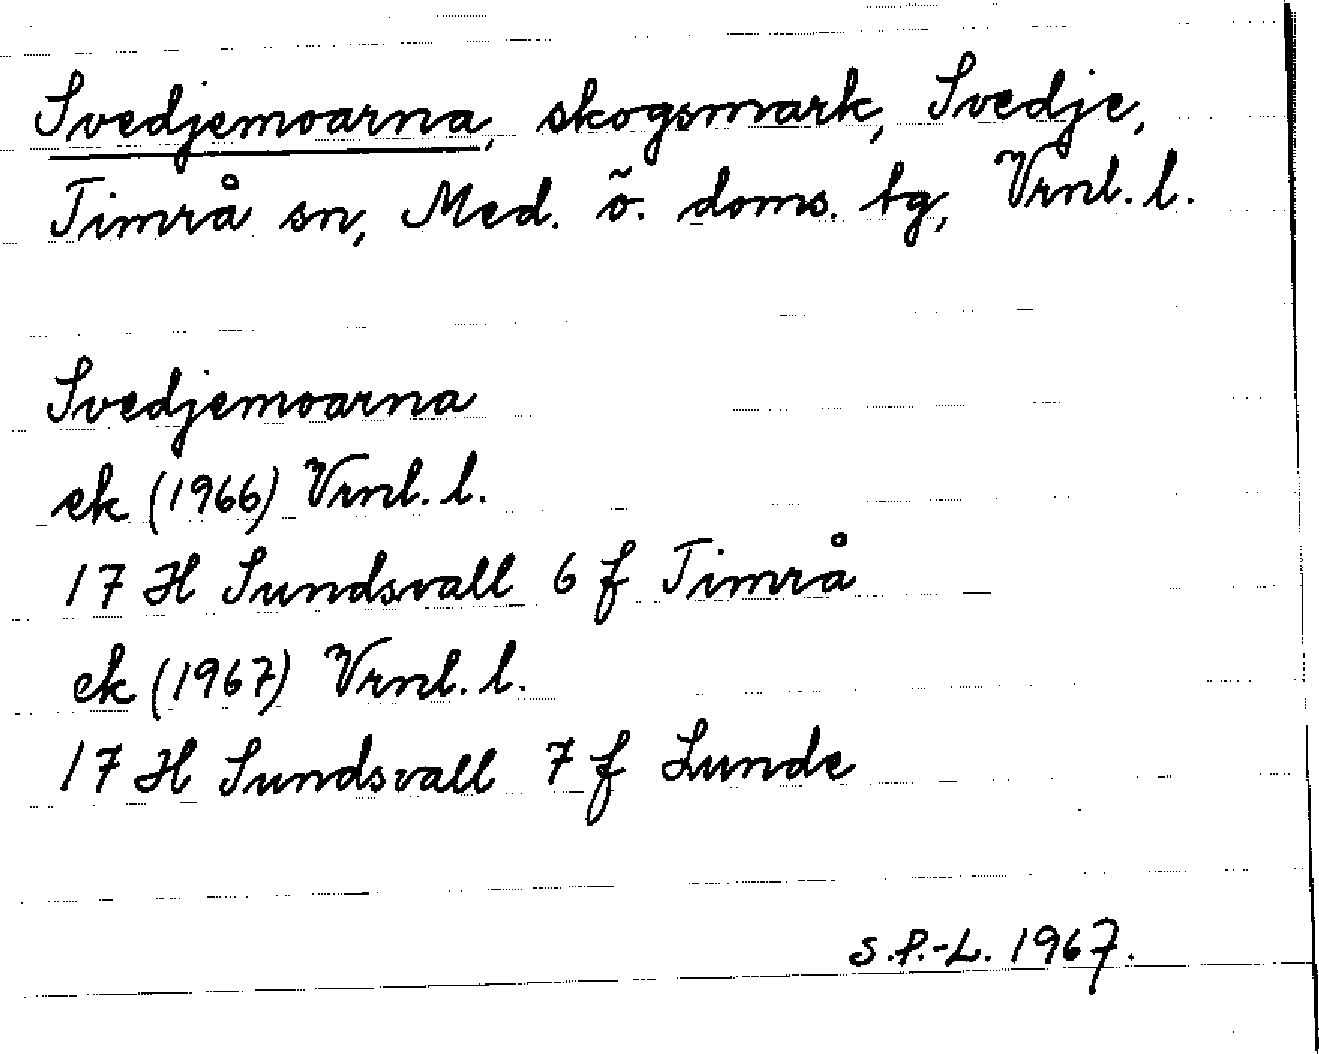 Svedjemoarna, skogsmark, Svedje,
Timrå sn, Med. ö. doms. tg, Vrnl. l.
Svedjemoarna
ek (1966) Vrnl. l.
17 H Sundsvall 6 f Timrå
ek (1967) Vrnl. l.
17 H Sundsvall 7 f Lunde
S.P.-L. 1967.